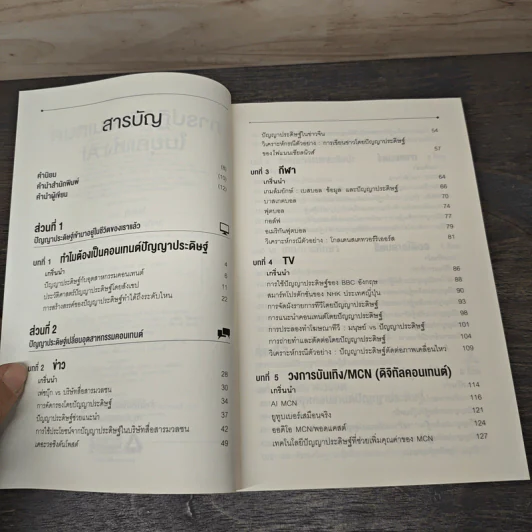 สารบัญ
คำนิยม (8)
คำนำสำนักพิมพ์ (11)
คำนำผู้เขียน (12)
ส่วนที่ 1
ปัญญาประดิษฐ์เข้ามาอยู่ในชีวิตของเราแล้ว
บทที่ 1 ทำไมต้องเป็นคอนเทนต์ปัญญาประดิษฐ์
เกริ่นนำ 4
ปัญญาประดิษฐ์กับอุตสาหกรรมคอนเทนต์ 6
ประวัติศาสตร์ปัญญาประดิษฐ์โดยสังเขป 11
การสร้างสรรค์ของปัญญาประดิษฐ์ทำได้ถึงระดับไหน 22
ส่วนที่ 2
ปัญญาประดิษฐ์เปลี่ยนอุตสาหกรรมคอนเทนต์
บทที่ 2 ข่าว
เกริ่นนำ 28
เฟซบุ๊ก vs บริษัทสื่อสารมวลชน 30
การคัดกรองโดยปัญญาประดิษฐ์ 34
ปัญญาประดิษฐ์ช่วยแนะนำ 37
การใช้ประโยชน์จากปัญญาประดิษฐ์ในบริษัทสื่อสารมวลชน 42
เดอะวอชิงตันโพสต์ 49
ปัญญาประดิษฐ์ในข่าวจีน 54
วิเคราะห์กรณีตัวอย่าง : การเขียนข่าวโดยปัญญาประดิษฐ์
ของไฟแนนเชียลนิวส์ 57
บทที่ 3 กีฬา
เกริ่นนำ 64
เกมส์ยักษ์ : เบสบอล ข้อมูล และปัญญาประดิษฐ์ 66
บาสเกตบอล 70
ฟุตบอล 74
กอล์ฟ 77
อเมริกันฟุตบอล 79
วิเคราะห์กรณีตัวอย่าง : โกลเดนสเตทวอร์ริเออร์ส 81
บทที่ 4 TV
เกริ่นนำ 86
การใช้ปัญญาประดิษฐ์ของ BBC อังกฤษ 88
สมาร์ทโปรดักชันของ NHK ประเทศญี่ปุ่น 90
การจัดผังรายการทีวีโดยปัญญาประดิษฐ์ 93
การแนะนำคอนเทนต์โดยปัญญาประดิษฐ์ 98
การประลองทำโฆษณาทีวี : มนุษย์ vs ปัญญาประดิษฐ์ 101
การถ่ายทำและตัดต่อโดยปัญญาประดิษฐ์ 104
วิเคราะห์กรณีตัวอย่าง : ปัญญาประดิษฐ์ตัดต่อภาพเคลื่อนไหว 109
บทที่ 5 วงการบันเทิง/MCN (ดิจิทัลคอนเทนต์)
เกริ่นนำ 114
AI MCN 116
ยูทูบเบอร์เสมือนจริง 121
ออดิโอ MCN/พอดแคสต์ 124
เทคโนโลยีปัญญาประดิษฐ์ที่ช่วยเพิ่มคุณค่าของ MCN 127